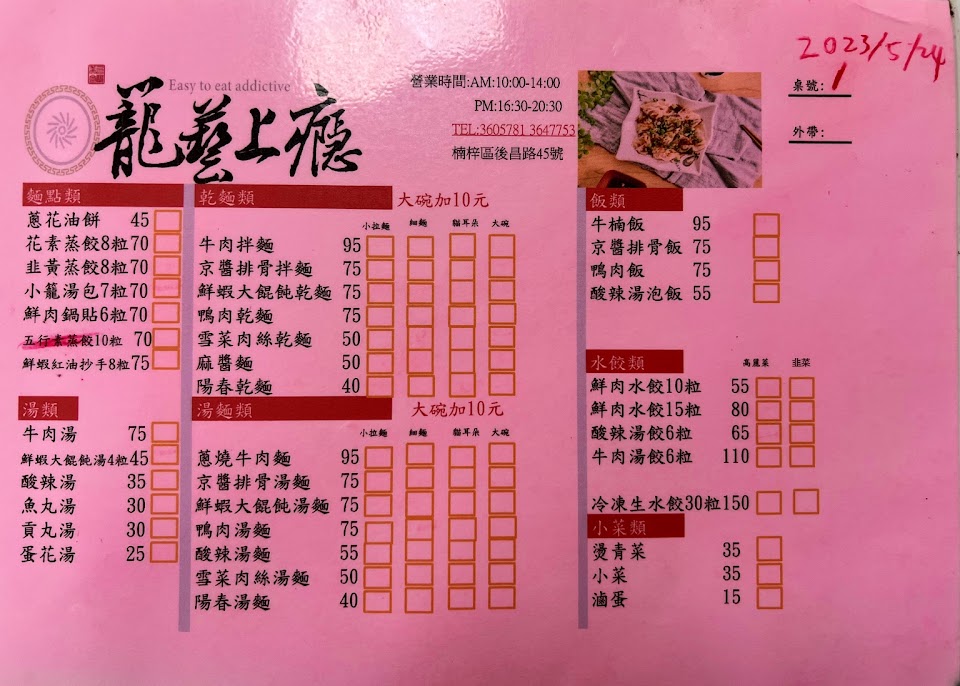 2023/5/24
Easy to eat addictive
龍藝上癮
營業時間:AM:10:00-14:00
PM:16:30-20:30
TEL:3605781 3647753
楠梓區後昌路45號
桌號: 1
外帶:
麵點類
蔥花油餅 45
花素蒸餃8粒 70
韭黃蒸餃8粒 70
小籠湯包7粒 70
鮮肉鍋貼6粒 70
五行素蒸餃10粒 70
鮮蝦紅油抄手8粒 75
湯類
牛肉湯 75
鮮蝦大餛飩湯4粒 45
酸辣湯 35
魚丸湯 30
貢丸湯 30
蛋花湯 25
乾麵類 大碗加10元
小拉麵 細麵 貓耳朵 大碗
牛肉拌麵 95
京醬排骨拌麵 75
鮮蝦大餛飩乾麵 75
鴨肉乾麵 75
雪菜肉絲乾麵 50
麻醬麵 50
陽春乾麵 40
湯麵類 大碗加10元
小拉麵 細麵 貓耳朵 大碗
蔥燒牛肉麵 95
京醬排骨湯麵 75
鮮蝦大餛飩湯麵 75
鴨肉湯麵 75
酸辣湯麵 55
雪菜肉絲湯麵 50
陽春湯麵 40
飯類
牛楠飯 95
京醬排骨飯 75
鴨肉飯 75
酸辣湯泡飯 55
水餃類 高麗菜 韭菜
鮮肉水餃10粒 55
鮮肉水餃15粒 80
酸辣湯餃6粒 65
牛肉湯餃6粒 110
冷凍生水餃30粒 150
小菜類
燙青菜 35
小菜 35
滷蛋 15